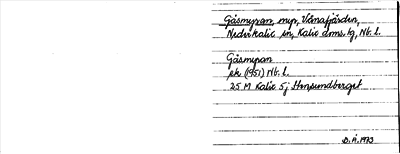 Gåsmyran, myr, Vånafjärden,
Nederkalix sn, Kalix doms. tg, Nb. l.
Gåsmyran
ek (1951) Nb. l.
25 M Kalix 5j Stensundberget
D.Å. 1973